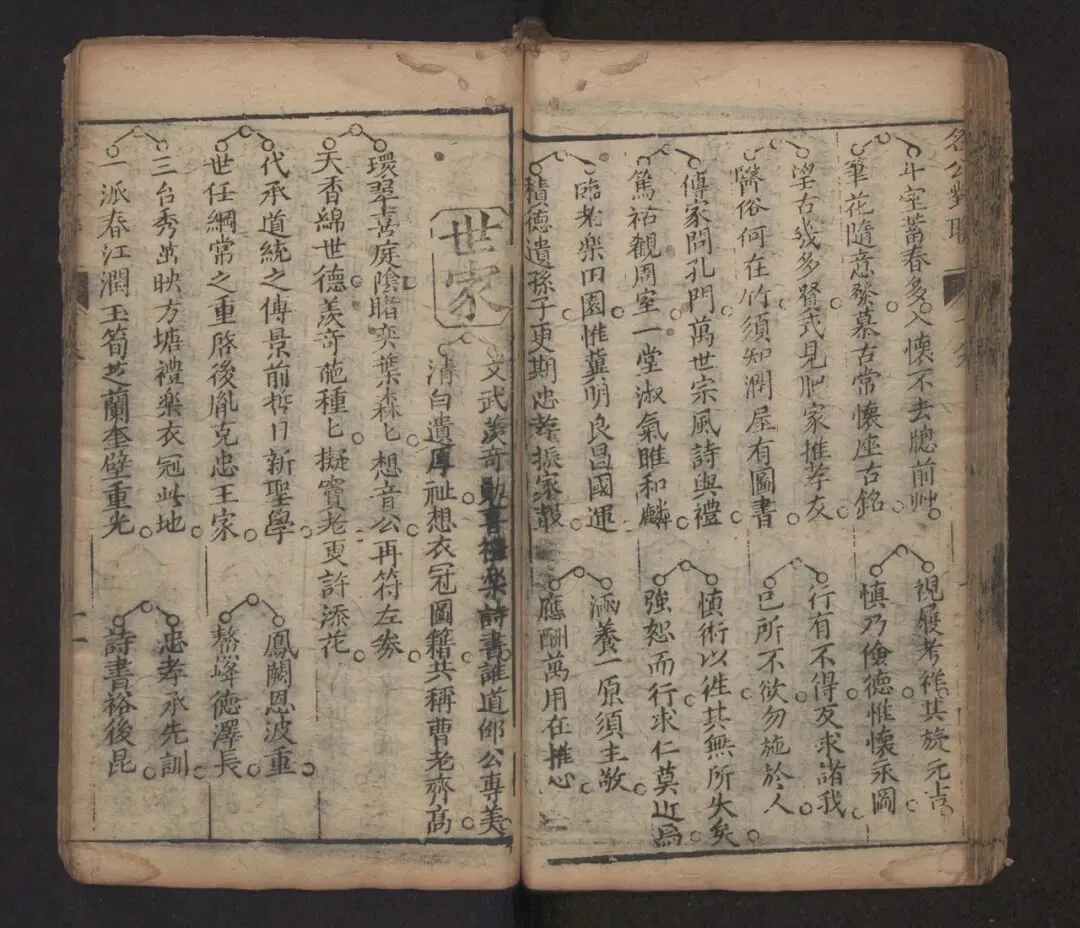 名公對聯
斗室蓄春多入懷不去牕前艸
筆花隨意發慕古常懷座右銘
視履考祥其旋元吉
慎乃儉德惟懷永圖
望古幾多賢式見肥家推孝友
醫俗何在竹須知潤屋有圖書
行有不得反求諸我
已所不欲勿施於人
傳家問孔門萬世宗風詩與禮
篤祜觀周室一堂淑氣雎和麟
慎術以往其無所失矣
強恕而行求仁莫近焉
臨老樂田園惟冀明良昌國運
積德遺孫子更期忠孝振家聲
涵養一原須主敬
應酬萬用在推心
世家
文武羨奇勳喜禮樂詩書誰道鄉公專美
清白遺厚祉想衣冠圖籍共稱曹老齊高
環翠喜庭陰睹奕葉森匕想音公再符左券
天香綿世德羨奇葩種匕擬竇老更許添花
代承道統之傳景前哲日新聖學
世任綱常之重啓後胤克忠王家
鳳闕恩波重
鰲峰德澤長
三台秀茁映方塘禮樂衣冠此地
一派春江潤玉筍芝蘭奎壁重光
忠孝承先訓
詩書裕後昆